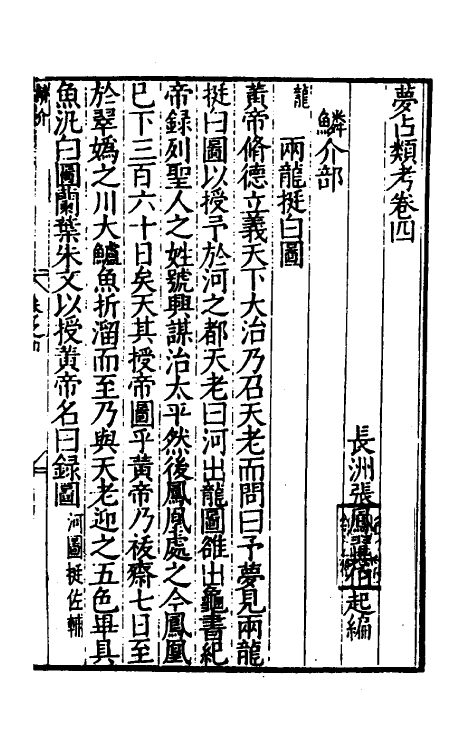 夢占類考卷四
長洲張鳳翼伯起編
鱗介部
龍
兩龍挺白圖
黃帝脩德立義天下大治乃召天老而問曰予夢見兩龍
挺白圖以授予於河之都天老曰河出龍圖雒出龜書紀
帝錄列聖人之姓號興謀治太平然後鳳凰處之今鳳凰
已下三百六十日矣天其授帝圖乎黃帝乃祓齋七日至
於翠嬀之川大鱸魚折溜而至乃與天老迎之五色畢具
魚汎白圖蘭葉朱文以授黃帝名曰録圖
河圖挺佐輔